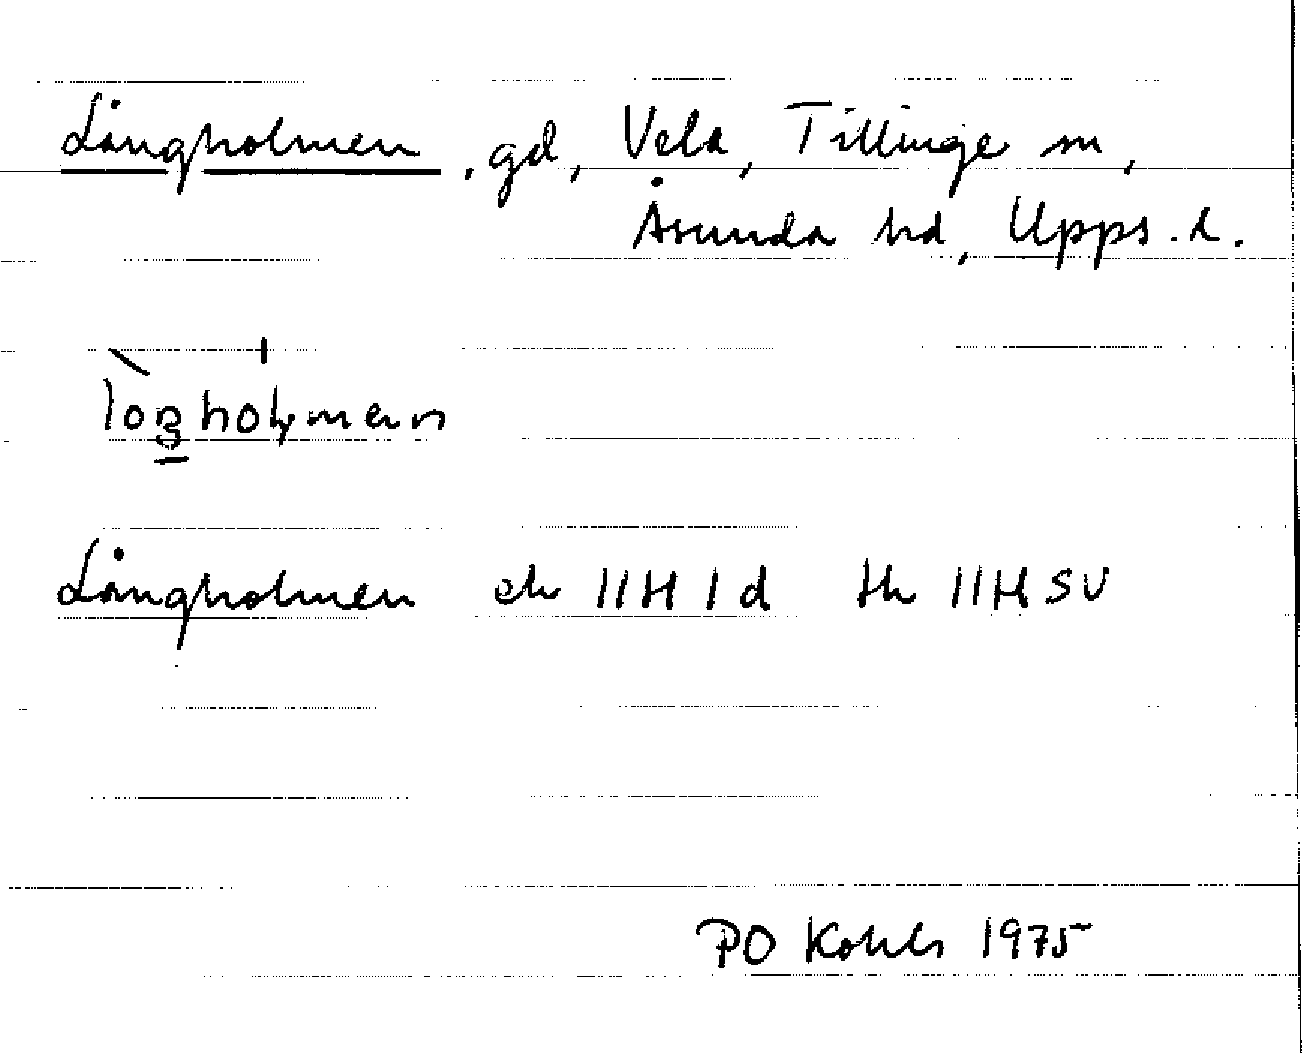 Långholmen, gd, Vela, Tillinge sn,
Åsunda hd, Upps. l.
Långholmen ek 11H 1d tk 11H SV
PO Kohls 1975